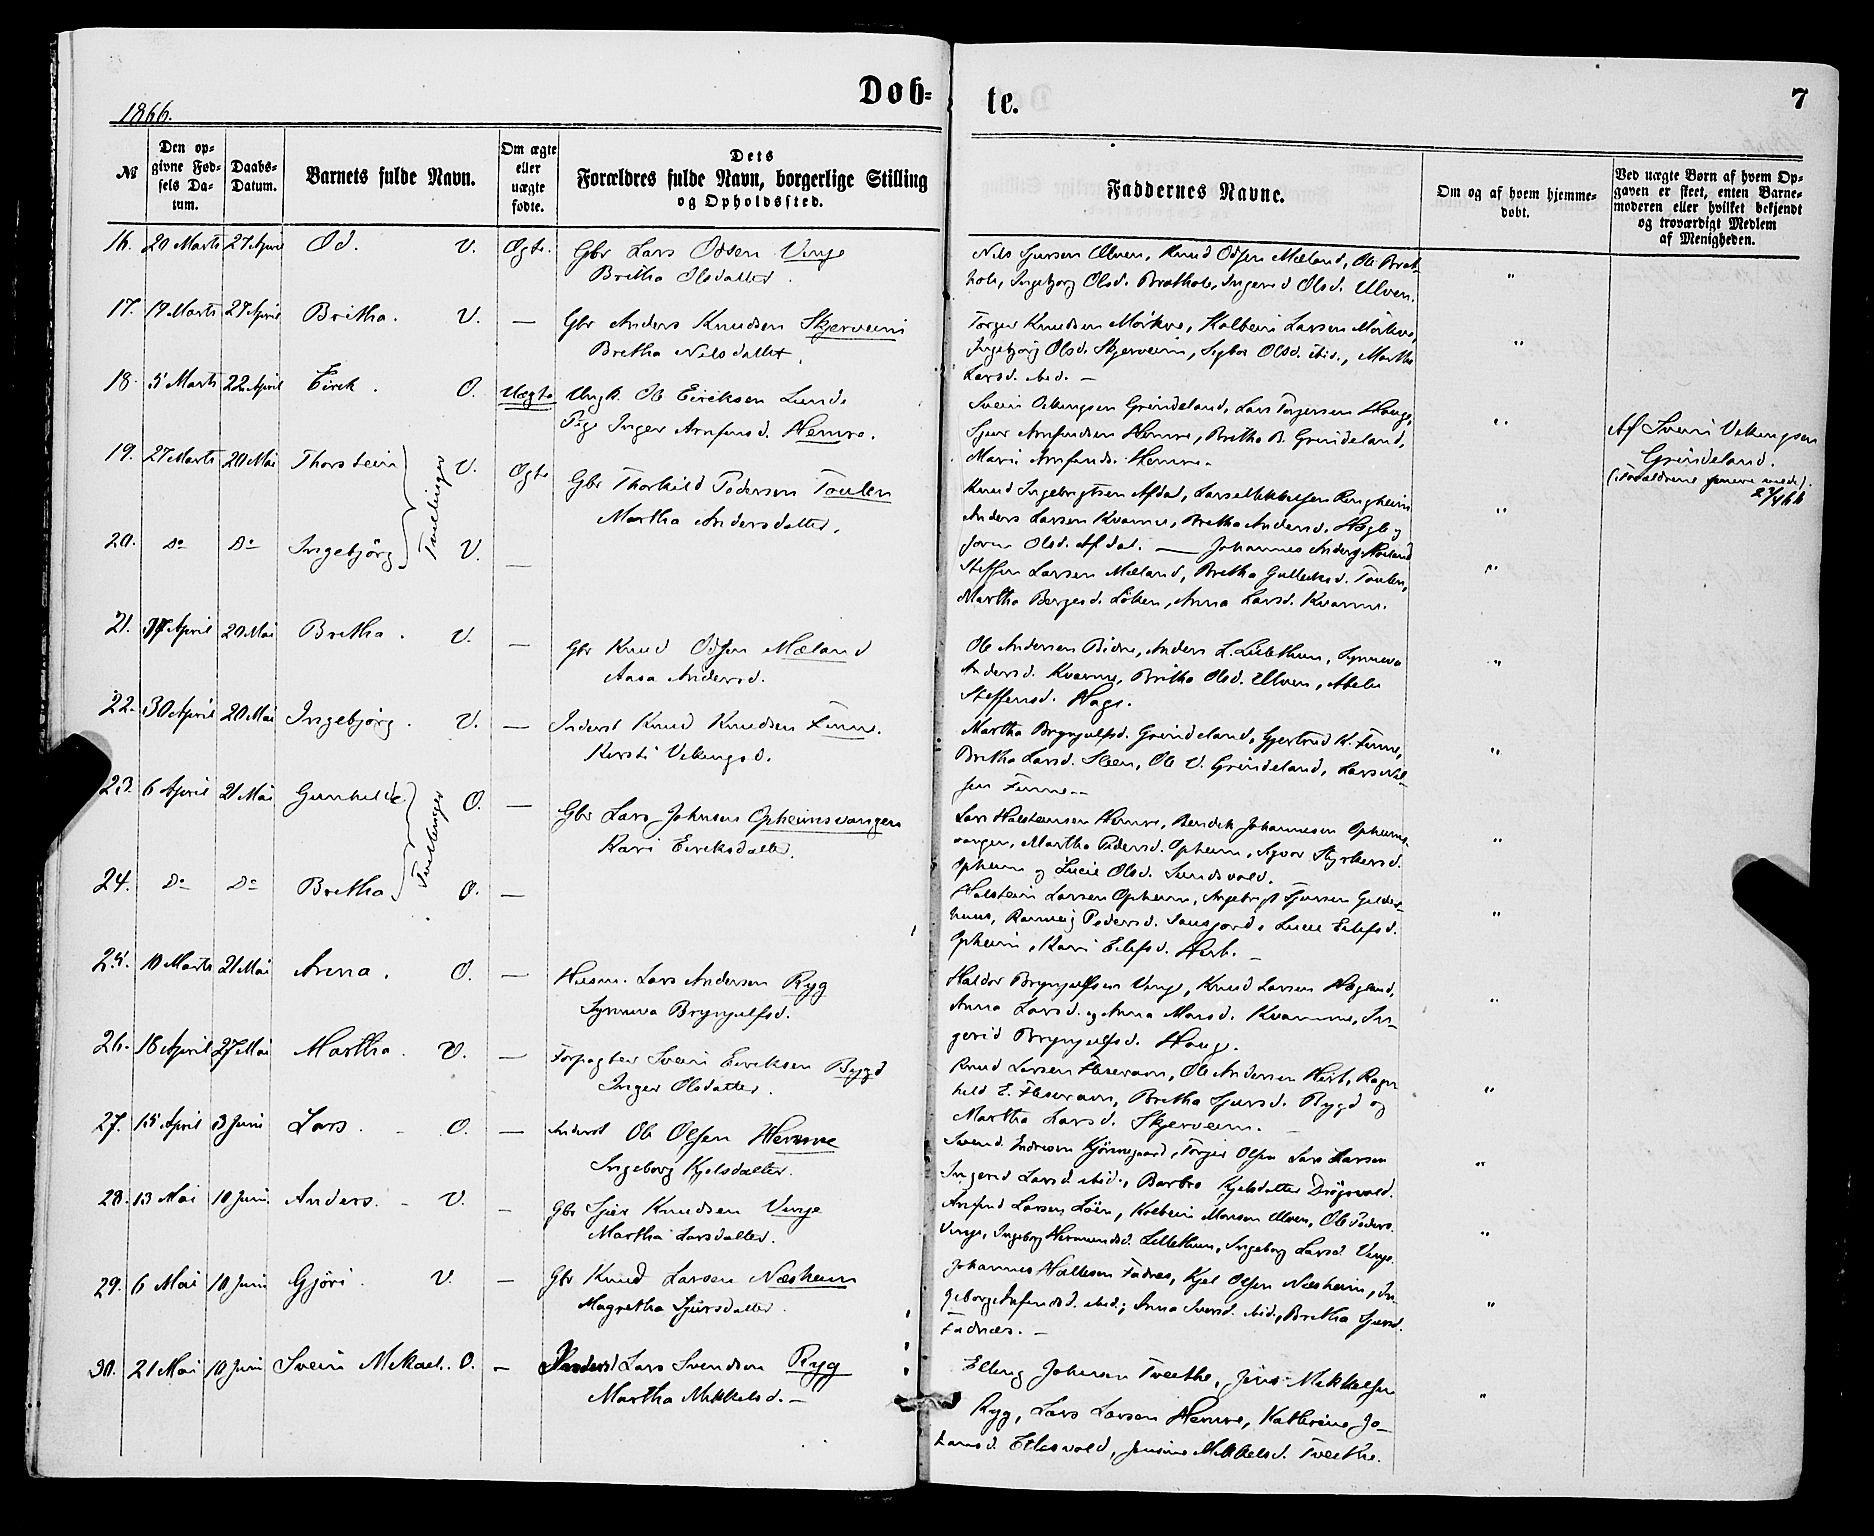 Døb-
te.
7
1866.
No
Den op-
givne Fød-
sels Da-
tum.
Daabs-
Datum.
Barnets fulde Navn.
Om ægte
eller
uægte
fødte.
Dets
Forældres fulde Navn, borgerlige Stilling
og Opholdssted.
Faddernes Navne.
Om og af hvem hjemme-
døbt.
Ved uægte Børn af hvem Op-
gaven er skeet, enten Barne-
moderen eller hvilket bekjendt
og troværdigt Medlem
af Menigheden.
16. 20 Marts 27 April Od. V. Ægte. Gbr Lars Odsen Vinje
Britha Olsdatter.
Nils Sjursen Ulven, Knud Odsen Mæland, Ole Brat-
hole, Ingebjorg Olsd. Brathole, Ingerid Olsd. Ulven.
17. 19 Marts 27 April Britha. V. — Gbr Anders Knudsen Skjerveim
Bretha Nilsdatter.
Torger Knudsen Mörkve, Kolbein Larsen Mörkve,
Ingebjörg Olsd. Skjerveim, Olsd. ibid., Martha
Larsd. ibid. —
18. 5 Marts 22 April Eirik. O. Uægte Ungk. Ole Eiriksen Lunde
Pige Inger Arnfinsd. Hemre.
Svein Vikingsen Grindeland, Lars Torgersen Hauge,
Sjur Arnfindsen Hemre, Britha B. Grindeland,
Mari Arnfinds. Hemre.
Af Svein Vikingsen
Grindeland.
19. 27 Marts 20 Mai Thorstein V. Ægte Gbr Thorkild Pedersen Toulen
Martha Andersdatter.
Tvillinger
Knud Ingebrigtsen Afdal, Lars Ringheim
Anders Larsen Kvarme, Bretha Andersd. og
Olsd. Afdal. — Johannes Mæland
20. Do Do Ingebjörg V. —
Steffen Larsen Mæland, Bretha Gulleiksd. Toulen,
Martha Bergesd. Löken, Anna Larsd. Kvarme.
21. April 20 Mai Bretha. V. — Gbr Knud Odsen Mæland
Aasa Andersd.
Ole Andersen Bidne, Anders L. Lillethun, Synneva
Andersd. Kvarme, Britha Olsd. Ulven,
Steffensd. Hage.
22. 30 April 20 Mai Ingebjörg. V. — Inderst Knud Knudsen Finne.
Kirsti Vikingsd.
Martha Brynjulfsd. Grindeland, Gjertrud K. Finne,
Britha Larsd. Steen, Ole V. Grindeland, Lars
sen Finne. —
23. 6 April 21 Mai Gunhilde O. — Gbr Lars Johnsen Opheimsvangen
Kari Eiriksdatter.
Tvillinger
Lars Halsteinsen Hemre, Bendik Johannesen Opheims-
vangen, Martha Pedersd. Opheim, Styrkersd.
Opheim og Lucie Olsd. Sundsvold.
24. Do Do Bretha O. —
Halstein Larsen Opheim, Ingebrigt Sjursen Gilder-
huus, Rannveig Pedersd. Lucie Eilifsd.
Opheim, Kari Eilifsd. Hirt. —
25. 10 Marts 21 Mai Anna. O. — Husm. Lars Andersen Ryg
Synneva Brynjulfsd.
Haldor Brynjulfsen Vinje, Knud Larsen Hægland,
Anna Larsd. og Anna Monsd. Kvarme, In-
gerid Brynjulfsd. Hauge.
26. 18 April 27 Mai Martha. V. — Forpagter Svein Eiriksen Rygd
Inger Olsdatter.
Knud Larsen Flisram, Ole Andersen Hirt, Ragn-
hild E. Flisram, Bretha Sjursd. Rygd og
Martha Larsd. Skjerveim. —
27. 15 April 3 Juni Lars. O. — Inderst Ole Olsen Hemre
Ingeborg Kjelsdatter.
Svend Indresen Torger Olsen Lars Larsen
Ingerid Larsd ibid., Barbro Kjelsdatter Drögsvold.
28. 13 Mai 10 Juni Anders. V. — Gbr Sjur Knudsen Vinje
Martha Larsdatter.
Arnfind Larsen Löen, Kolbein Monsen Ulven, Ole Peders.
Vinje, Ingeborg Hermundsd. Lillethun, Ingeborg Larsd. Vinje.
29. 6 Mai 10 Juni Gjöri. V. — Gbr Knud Larsen Næsheim
Magretha Sjursdatter.
Johannes Hallesen Fadnes, Kjel Olsen Næsheim, In-
geborg Arnfindsd. ibid., Anna Iversd. ibid., Bretha Sjursd.
Fadnæs. —
30. 21 Mai 10 Juni Svein Mikael. O. — Inderst Lars Svendsen Ryg
Martha Mikkelsd. —
Elling Johnsen Tveethe, Jens Mikkelsen
Ryg, Lars Larsen Hemre, Kathrine Jo-
hansd. Jensine Mikkelsd. Tveethe.